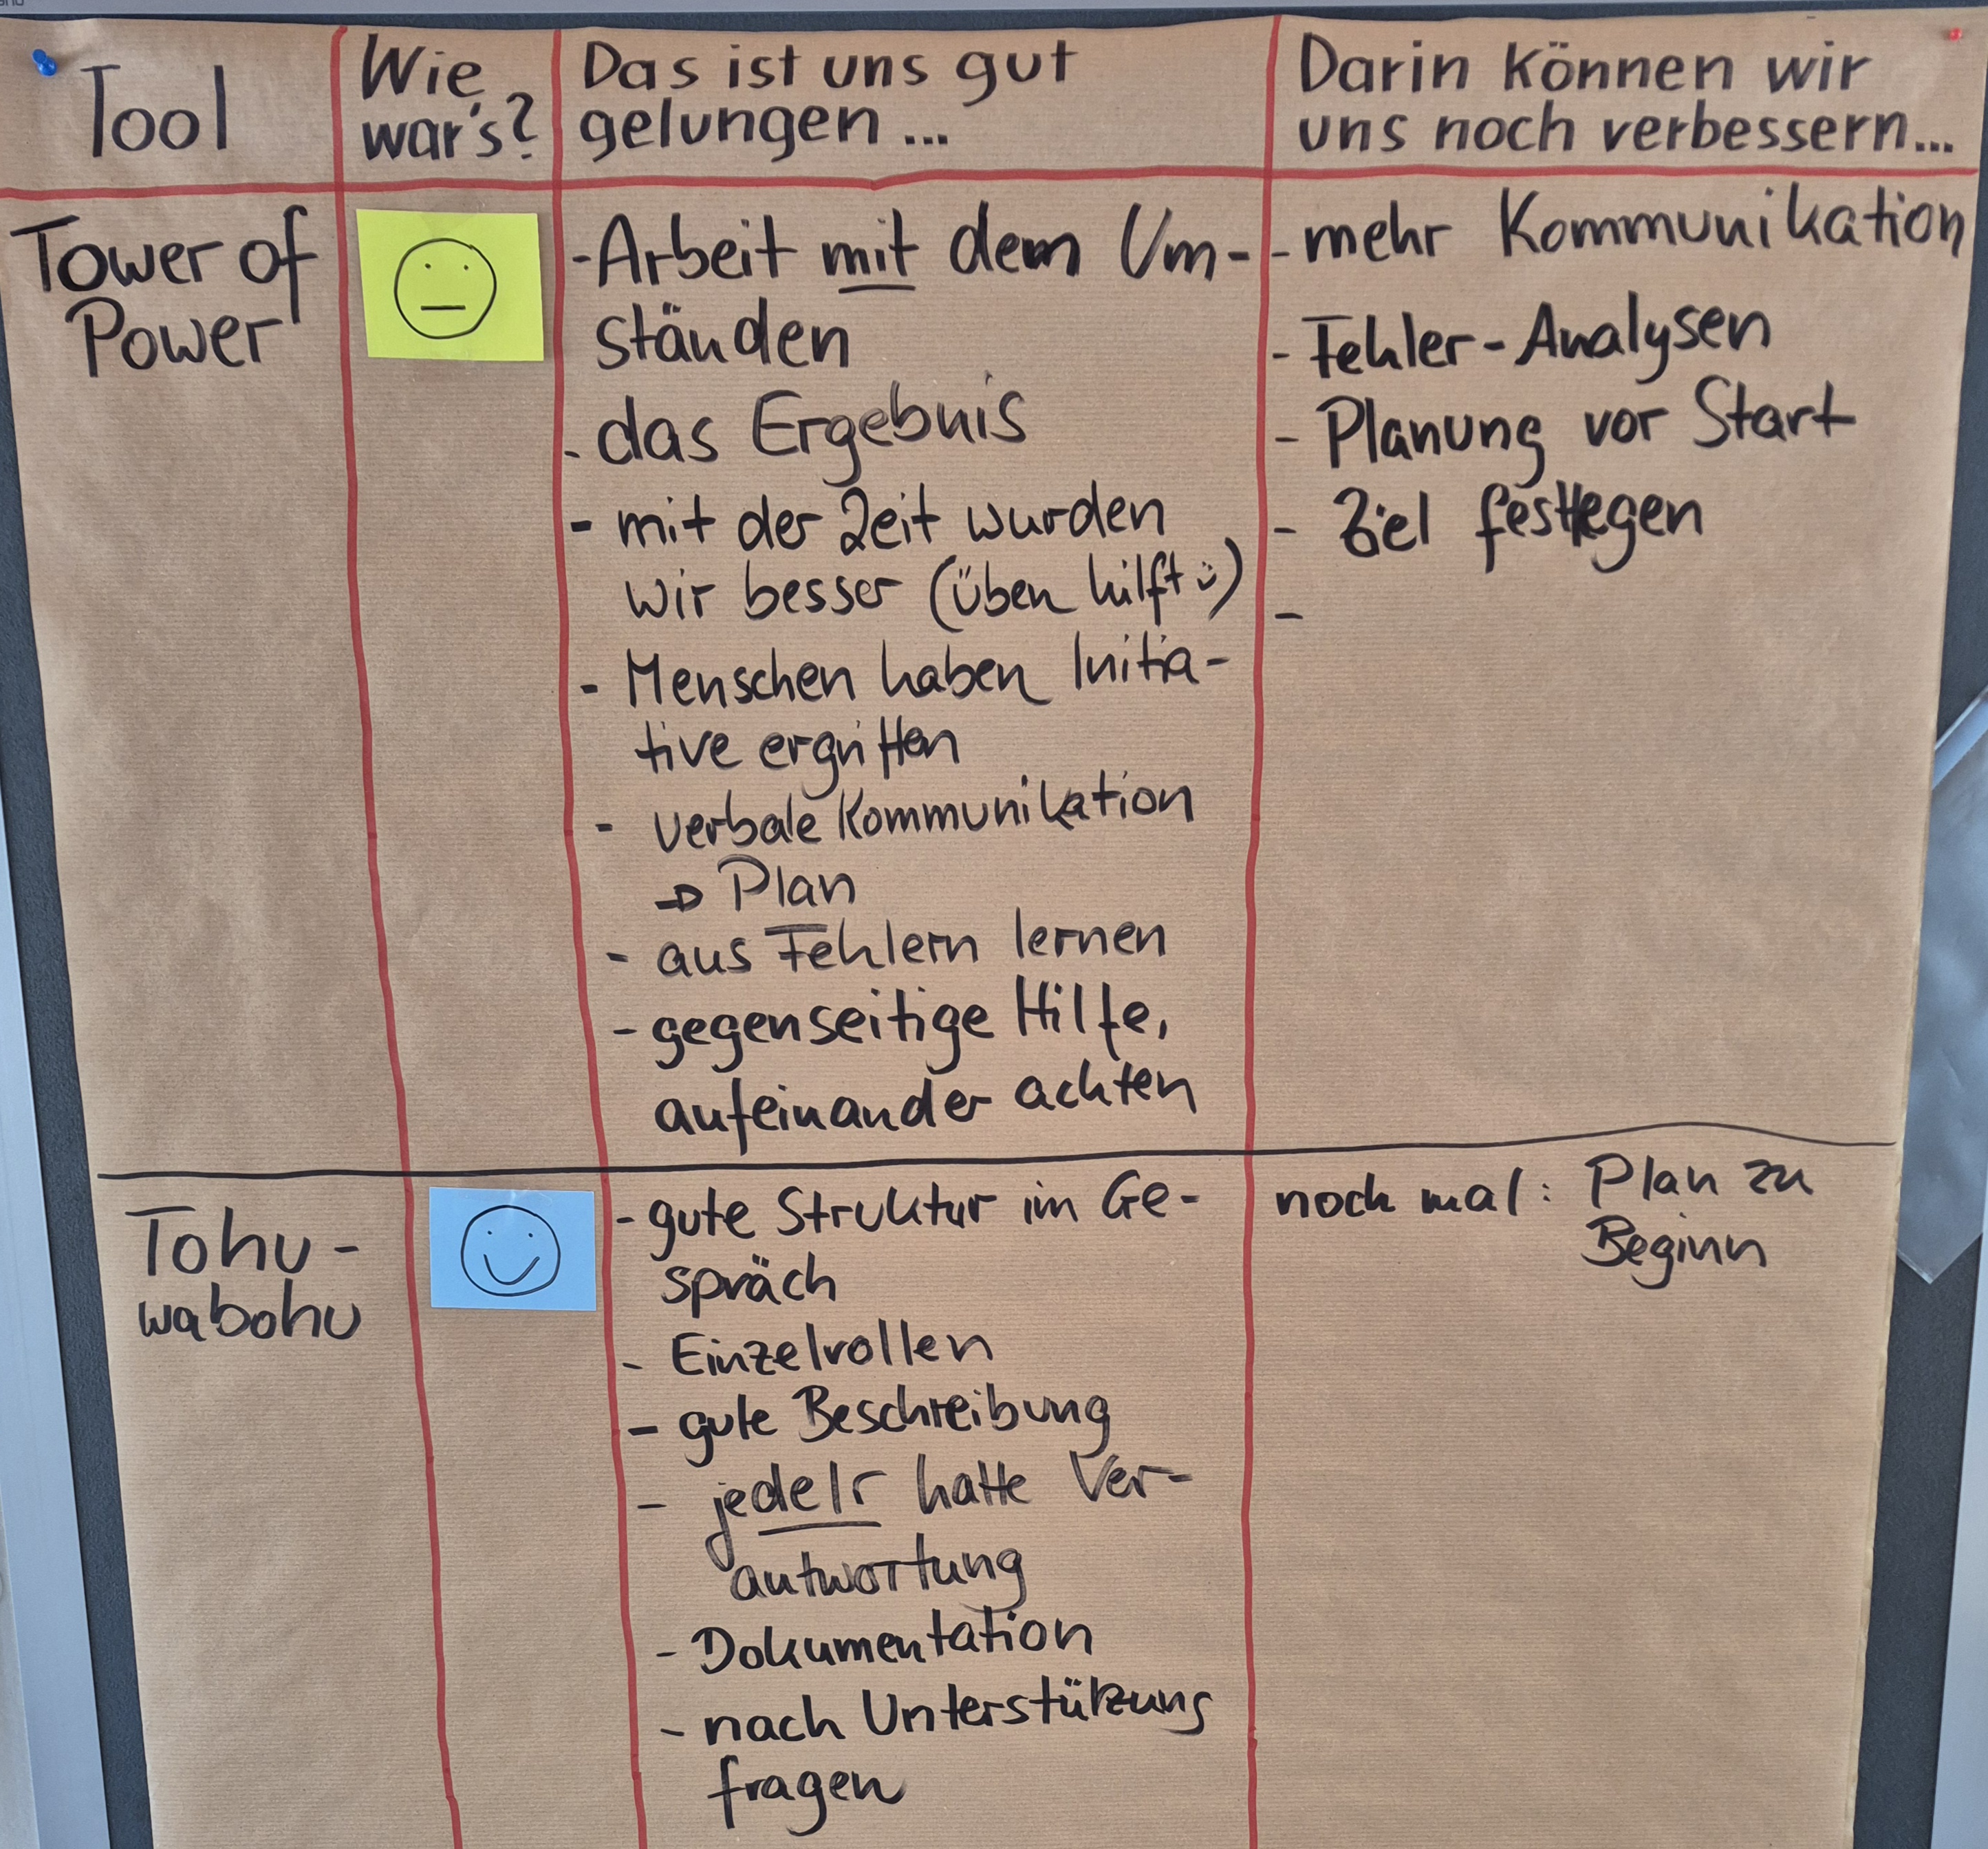 Tool
Wie
war's?
Das ist uns gut
gelungen ...
Darin können wir
uns noch verbessern...
Tower of
Power
- Arbeit mit dem Um-
ständen
- das Ergebnis
- mit der Zeit wurden
wir besser (üben hilft ü)
- Menschen haben Initia-
tive ergriffen
- verbale Kommunikation
→ Plan
- aus Fehlern lernen
- gegenseitige Hilfe,
aufeinander achten
- mehr Kommunikation
- Fehler-Analysen
- Planung vor Start
- Ziel festlegen
-
Tohu-
wabohu
- gute Struktur im Ge-
spräch
- Einzelrollen
- gute Beschreibung
- jede/r hatte Ver-
antwortung
- Dokumentation
- nach Unterstützung
fragen
noch mal: Plan zu
Beginn